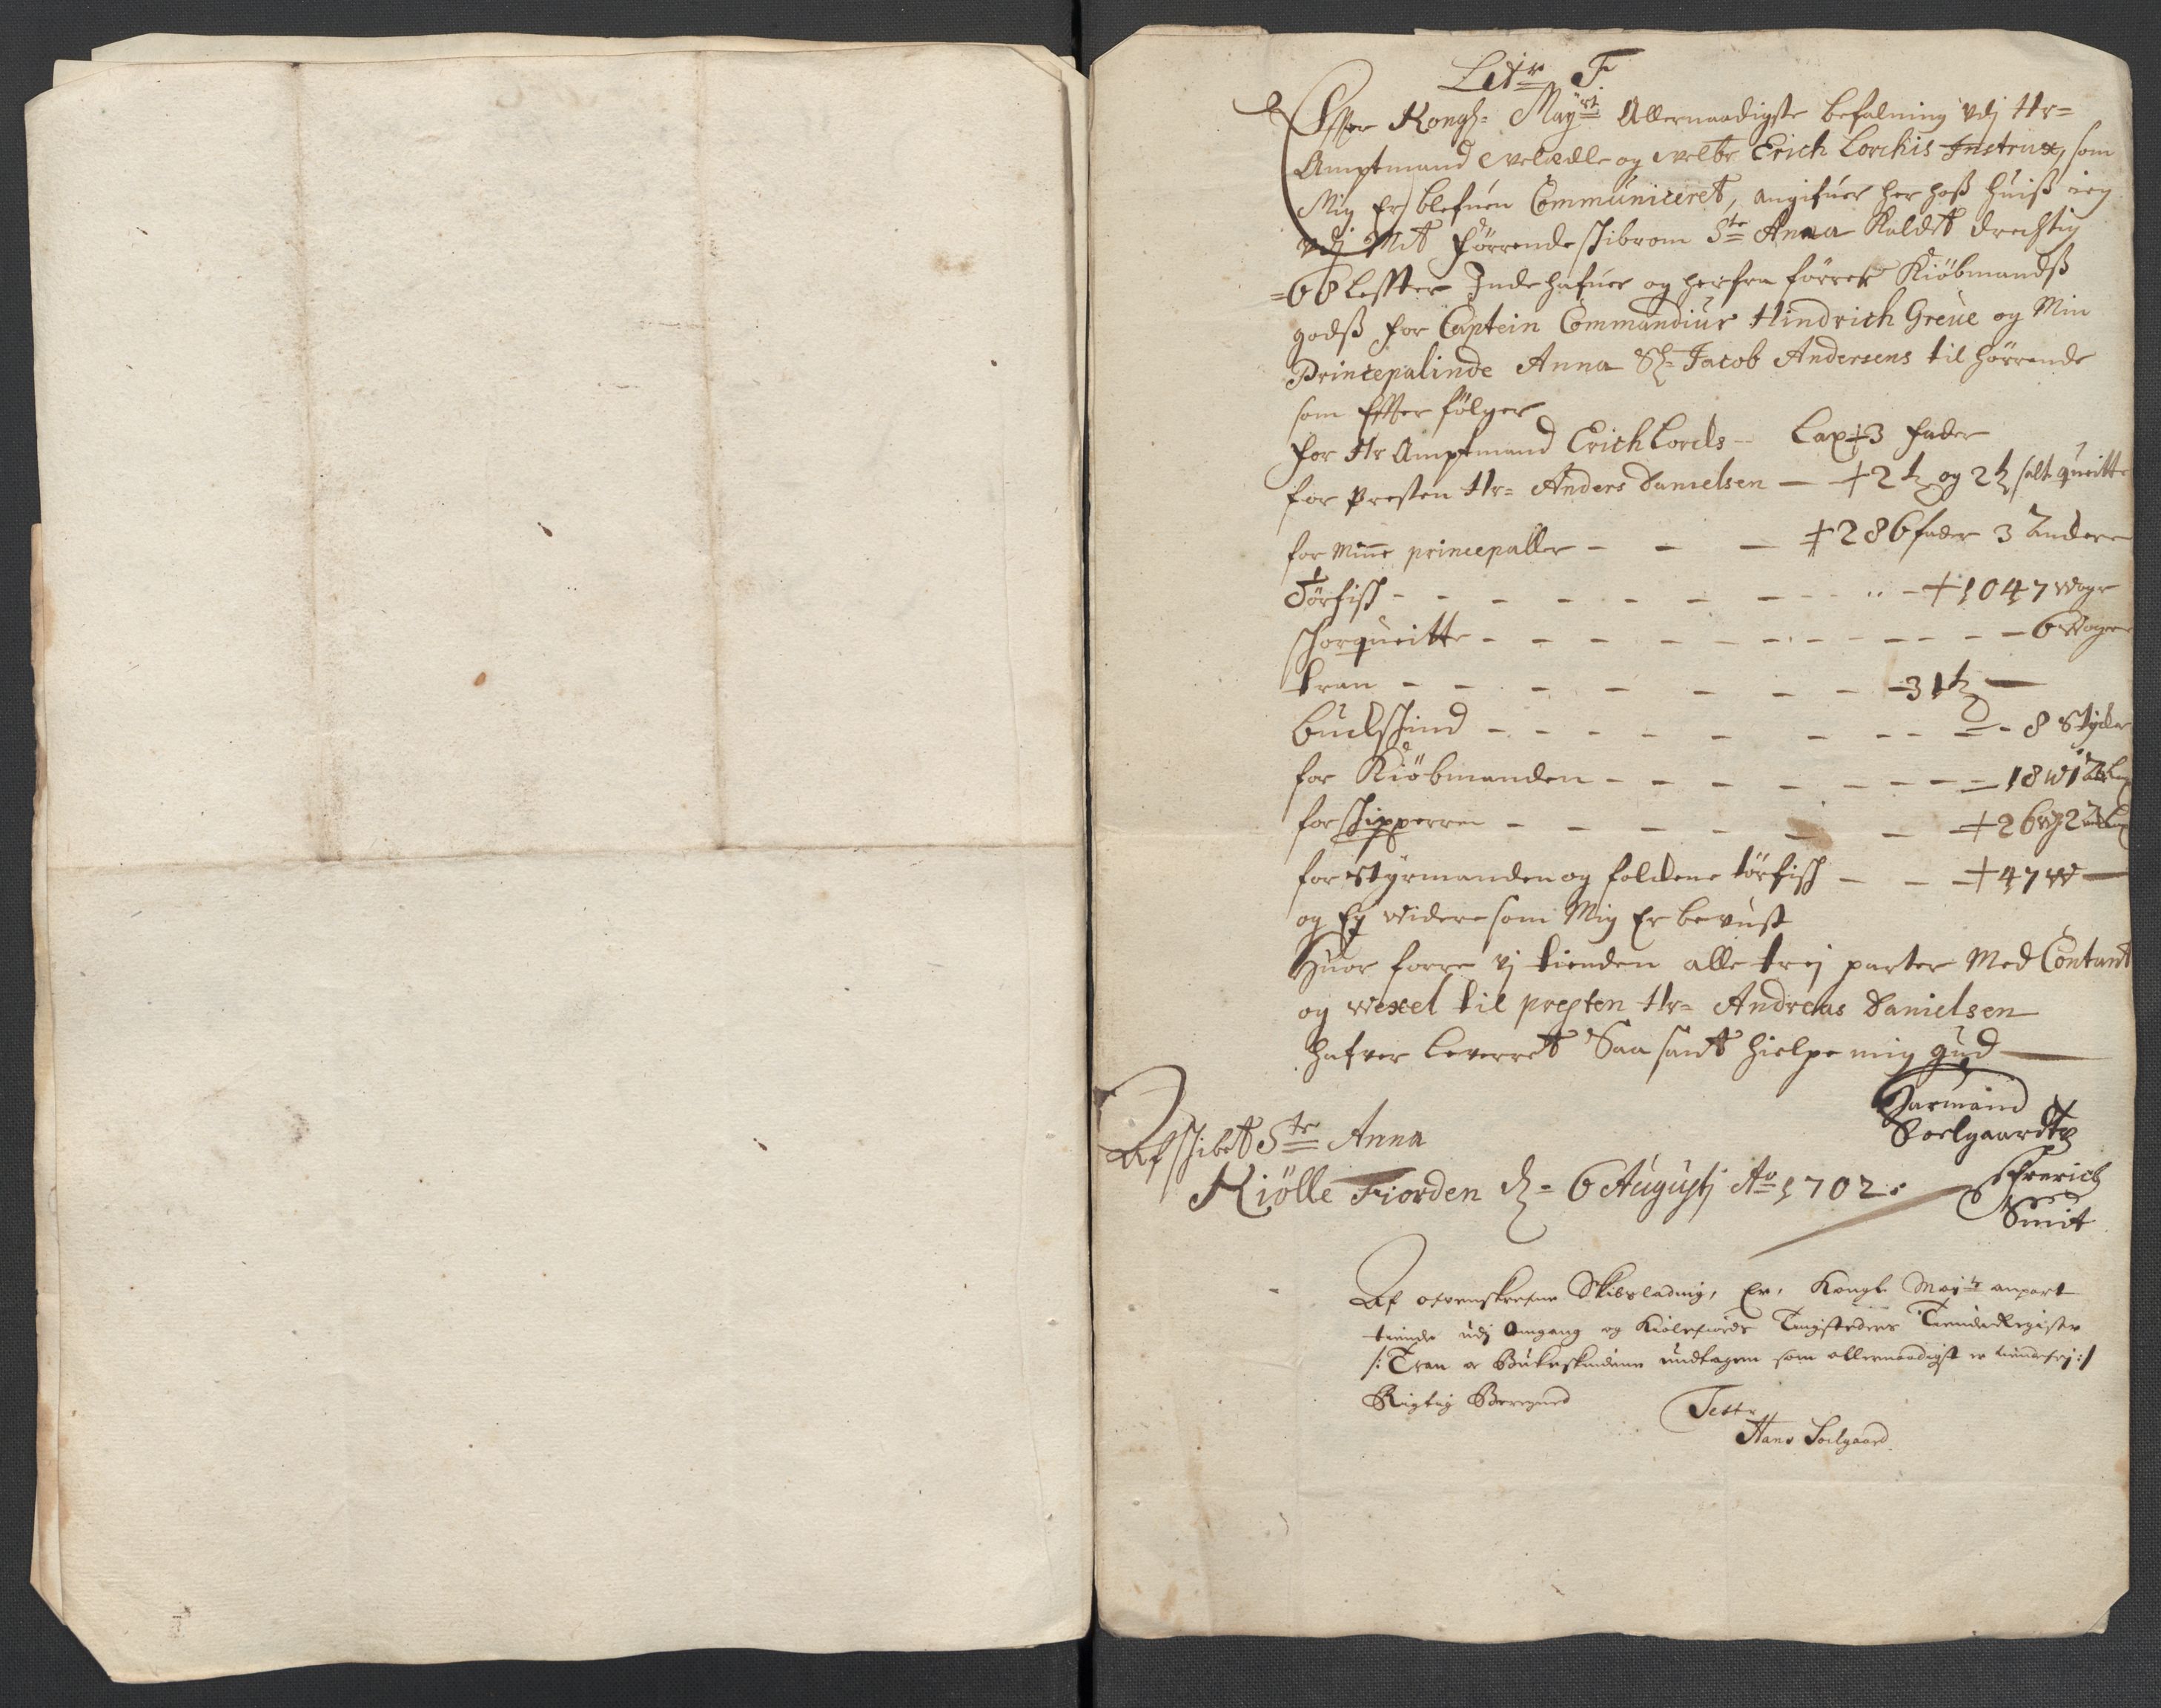 Litr F
Effter Kongl= Mayst: Allernaadigste befalning vdj Hr=
Amptmand velædle og velbr Erich Lorchis Instrux, som
Mig Er blefuen Communiceret, angifuer her hoß huiß ieg
vdj Mit förrende skibrom Ste Anna Kaldet drechtig
=68 lester Inde hafuer og herfra förrer Kiöbmandß
godß for Captein Commandiur Hindrich Greue og Min
Princepalinde Anna Sl= Jacob Andersens til hörrende
som Effter fölger
for Hr Amptmand Erich Lorck -- Lax + 3 fader
for Presten Hr= Anders Danielsen — + 2 t og 2 t salt queitte
for Mine princepaller - - — + 286 fader 3 andere
Törfisk - - - - - - - + 1047 woge
skorqueitte - - - - - - - - - 6 Woger
tran - - - - - - - 31 t —
buckskind - - - - - - - - 8 Stycker
for Kiöbmanden - - - - - - - 18 w 1
for skipperen - - - - - - + 26 w 2
for Styrmanden og folckene törfisk — - + 47 w —
og Ej widere som Mig Er bevust
Huor forre vj tienden alle trej parter Med Contant
og wexel til presten Hr= Andreas Danielsen
hafver leverret Saa sandt hielpe mig gud —
Harmand
Soelgaardt
Af skibet Ste Anna
Kiölle Fiorden d= 6 Augustj Ao 1702.
Frerich
Smit
Af ofvenskrefne Skibsladning, Er, Kongl Mayts anpart
tiende udj Omgang og Kiölefiords Tingsteders Tiende Register
/: Tran og Bukeskindene undtagen som allernaadigst er tiendefrj :/
Rigtig Beregned
Test
Hans Soelgaard